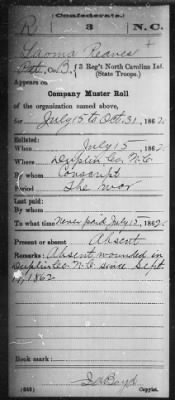 (Confederate.)
R 3 N.C.
Reaves
Pvt., Co. B, 3 Reg't North Carolina Inf.
(State Troops.)
Appears on
Company Muster Roll
of the organization named above,
for July 15 to Oct. 31, 1862.
Enlisted:
When July 15, 1862.
Where Duplin Co. N.C.
By whom Conscript
Period The War
Last paid:
By whom
To what time Never paid July 15, 1862.
Present or absent Absent
Remarks: Absent, wounded in
Duplin Co. N.C. since Sept.
1862
Book mark:
(642) Copyist.